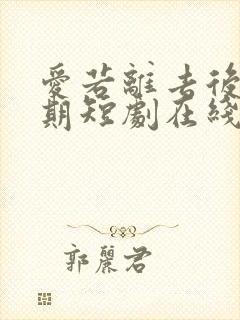 愛若離去後
期短劇在綫
郭麗君